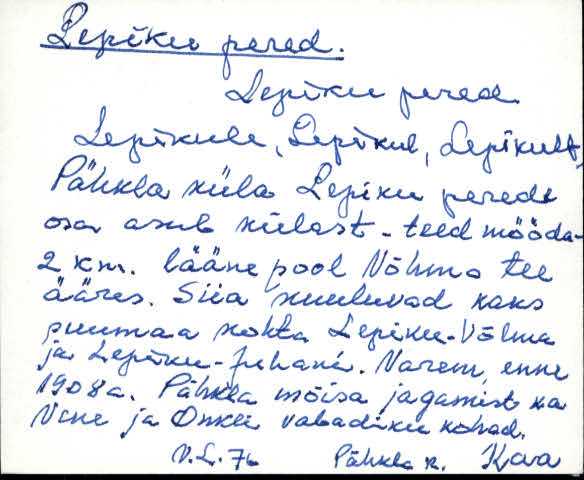 Lepiku pered.
Lepiku pered
Lepikule, Lepikul, Lepikult,
Pähkla küla Lepiku perede
osa asub külast - teed mööda -
2 km. lääne pool Võhma tee
ääres. Siia kuuluvad kaks
suurmaa kohta Lepiku-Võlma
ja Lepiku-Juhani. Varem, enne
1908 a. Pähkla mõisa jagamist ka
ja Onkli vabadiku kohad.
V.L. 76 Pähkla k. Kaa